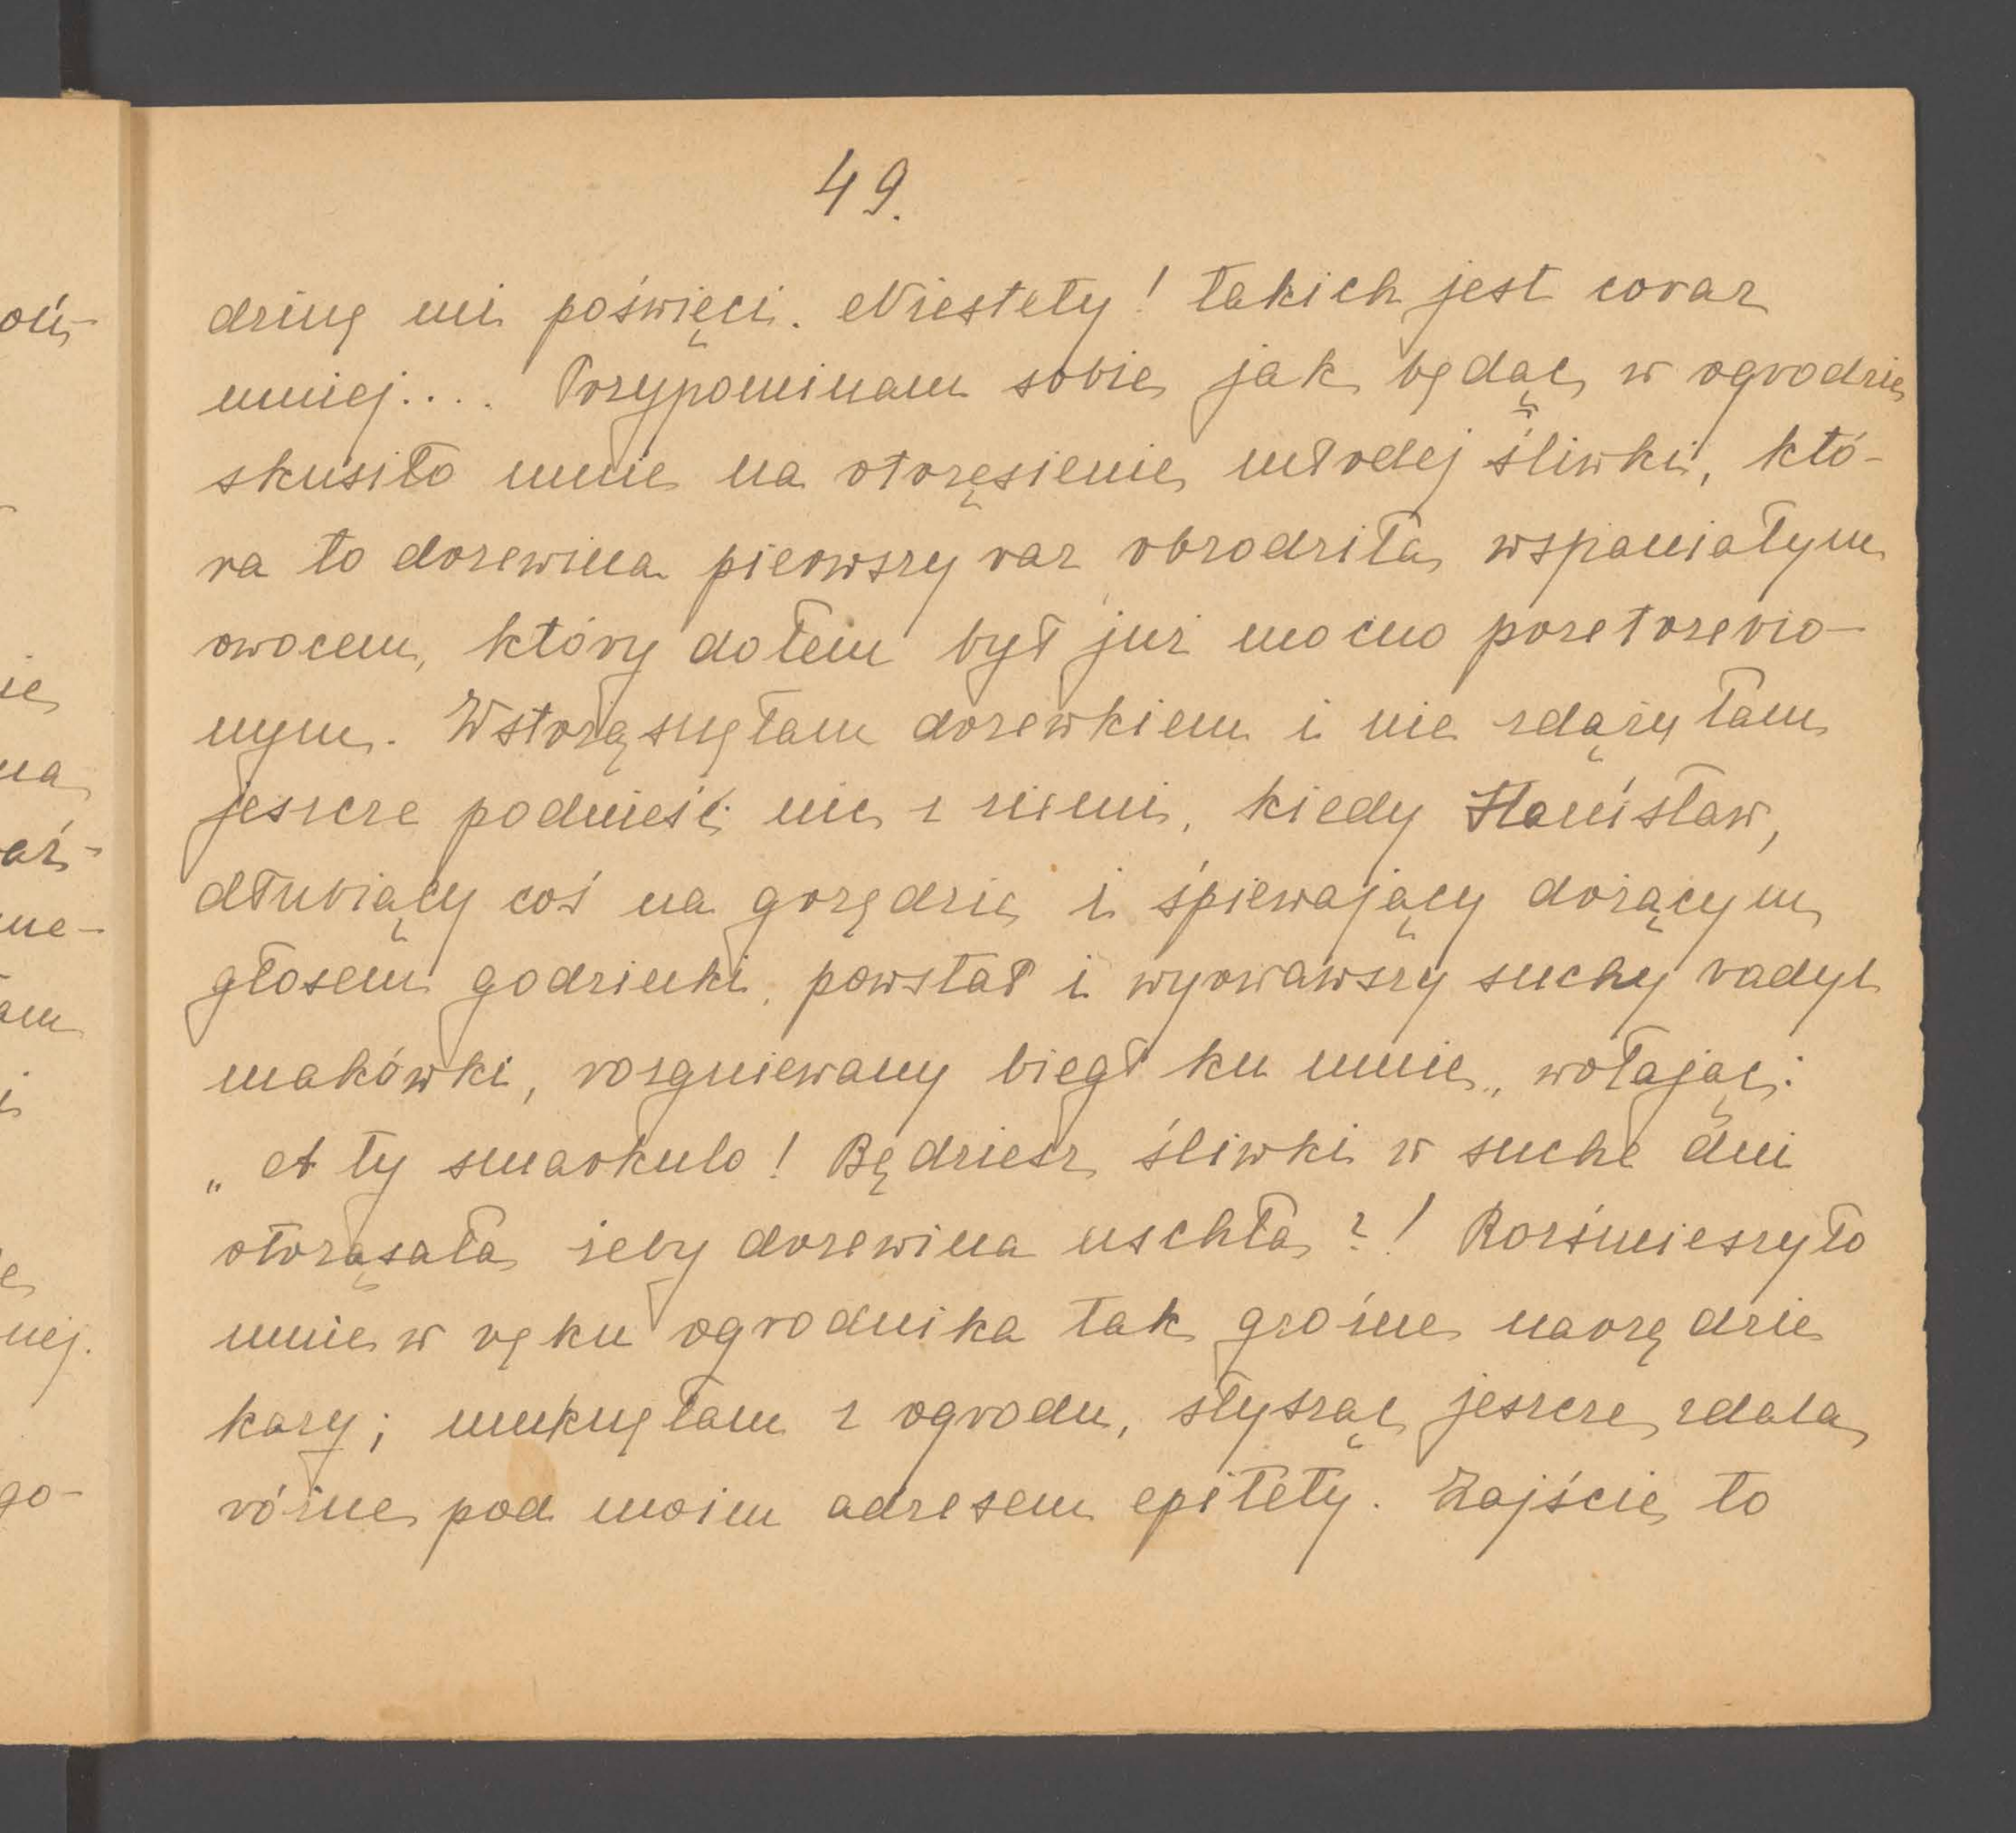 49.
dzinę mi poświęci. Niestety! takich jest coraz
mniej.... Przypominam sobie jak będąc w ogrodzie
skusiło mnie na otrzęsienie młodej śliwki, któ-
ra to drzewina pierwszy raz obrodziła wspaniałym
owocem, który dołem był już mocno przetrzebio-
nym. Wstrząsnęłam drzewkiem i nie zdążyłam
jeszcze podnieść nic z ziemi, kiedy Stanisław,
dłubiący coś na grzędzie i śpiewający drżącym
głosem godzinki, powstał i wyrwawszy suchy radyl
makówki, rozgniewany biegł ku mnie, wołając:
„A ty smarkulo! Będziesz śliwki w suche dni
otrząsała żeby drzewina uschła?! Rozśmieszyło
mnie w ręku ogrodnika tak groźne narzędzie
kary; umknęłam z ogrodu, słysząc jeszcze zdala
różne pod moim adresem epitety. Zajście to
oń-
ie
na
aź-
me-
am
i
e
nej.
go-